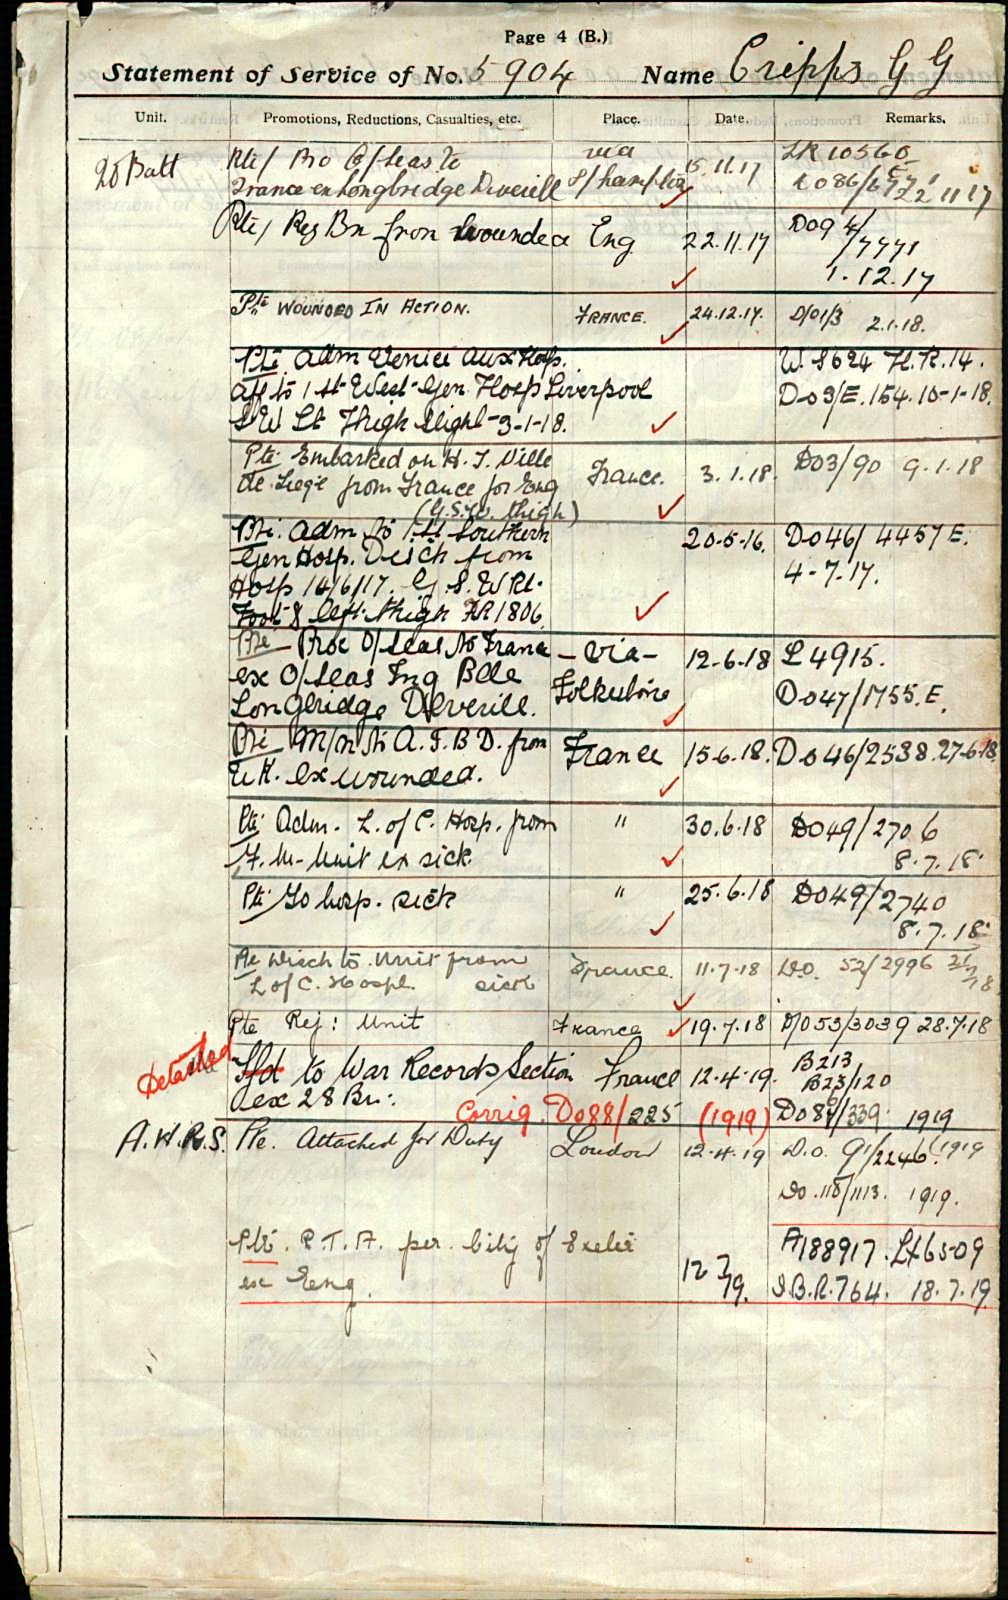 Page 4 (B.)
Statement of Service of No. 5904 Name Cripps G G
Unit. Promotions, Reductions, Casualties, etc. Place. Date. Remarks.
28 Batt Pte/ Pro O/Seas to via 15.11.17 LR 10560
France ex Longbridge Deverill S/hampton D086/ 22 11 17
Pte/ Reg Bn from wounded Eng 22.11.17 D09 4/
/7771
1.12.17
Pte WOUNDED IN ACTION. FRANCE. 24.12.17. D/01/3 2.1.18.
Pte Adm Venice Aux Hosp. W.8624 H.R.14.
aff to 1st West Gen Hosp Liverpool Do3/E.154.10-1-18.
S.W Lt Thigh slight 3-1-18.
Pte Embarked on H.S. Ville France. 3.1.18. D03/90 9.1.18
de Liege from France for Eng
(G.S.W. thigh)
Pte. Adm to 1st Southern 20-5-16. Do46/4457E.
Gen Hosp. Disch from 4-7-17.
Hosp 14/6/17. G.S.W Rt.
Foot & left thigh HR1806.
Pte Proc O/Seas to France - via - 12-6-18 L4915.
ex O/seas Tng Bde Folkestone Do47/1755.E.
Longbridge Deverill.
Pte M/in to A.I.B.D. from France 15-6-18. Do46/2538.27-6-18
U.K. ex wounded.
Pte. Adm. L. of C. Hosp. from " 30.6.18 D049/2706
F. M. Unit ex sick. 8.7.18.
Pte To hosp. sick " 25.6.18 D049/2740
8.7.18.
Pte Disch to Unit from France. 11.7.18 D.O. 52/2996
L of C. Hospl. sick
Pte Rej: Unit France 19.7.18 D/053/3039 28.7.18
Detached Tfd to War Records Section France 12.4.19. B213
ex 28 Bn. B23/120
Corrig. Do88/225 (1919) Do86/339 1919
A.W.R.S. Pte. Attached for Duty London 12.4.19 D.O. 91/2246 1919
Do.118/1113. 1919.
Pte. R.T.A. per City of Exeter A188917.L46509
ex Eng. 12 7/19. I.B.R.764. 18.7.19